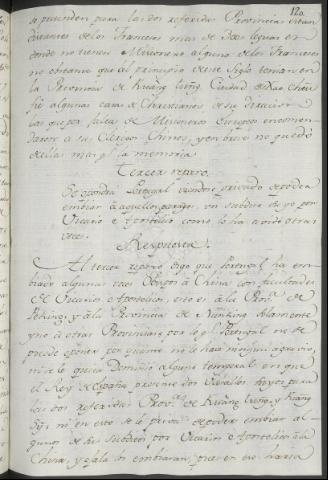 120
se pretenden para las dos referidas Provincias estan
distantes de los Franceses mas de 200 leguas en
donde no tienen Misionero alguno de los Franceses
no obstante que al principio de este Siglo tenian en
la Provincia de Kuâng tung, Ciudad de Xao cheu
fù algunas casas de Christianos de su Direccion
las que por falta de Misioneros Europeos encomen
daron a sus Clerigos Chinos, y en breve no quedó
de ella mas q.e la memoria
Tercer reparo.
Se opondrá Portugal viendose privado de poder
embiar â aquellos parages un subdito suyo por
Vicario Apostolico como lo ha tenido otras
veces.
Respuesta.
Al tercer reparo digo que Portugal ha em
biado algunas veces Obispos à China con facultades
de Vicarios Apostolicos, esto es à la Prov.a de
Peking, y â la Provincia de Nanking solamente
y no à otras Provincias por lo q.e Portugal no se
puede oponer por quanto no le hace ningun agravio,
ni se le quita Dominio alguno temporal en que
el Rey de España presente dos Vasallos suyos para
las dos referidas Prov.as de Kuâng tung, y Kuâng
Sy, ni en esto se le priva de poder embiar al
gunos de sus subditos por Vicarios Apostolicos â la
China, y ojalá los embiaran, pues en eso haria